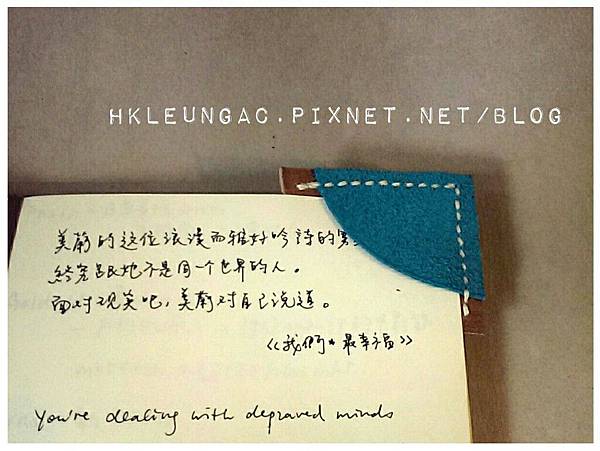 HKLEUNGAC.PIXNET.NET/BLOG
美龄的这位浪漫而雅好吟詩的男
終究跟她不是同一个世界的人。
面对现实吧，美龄对自己说道。
《我們最幸福》
You're dealing with depraved minds